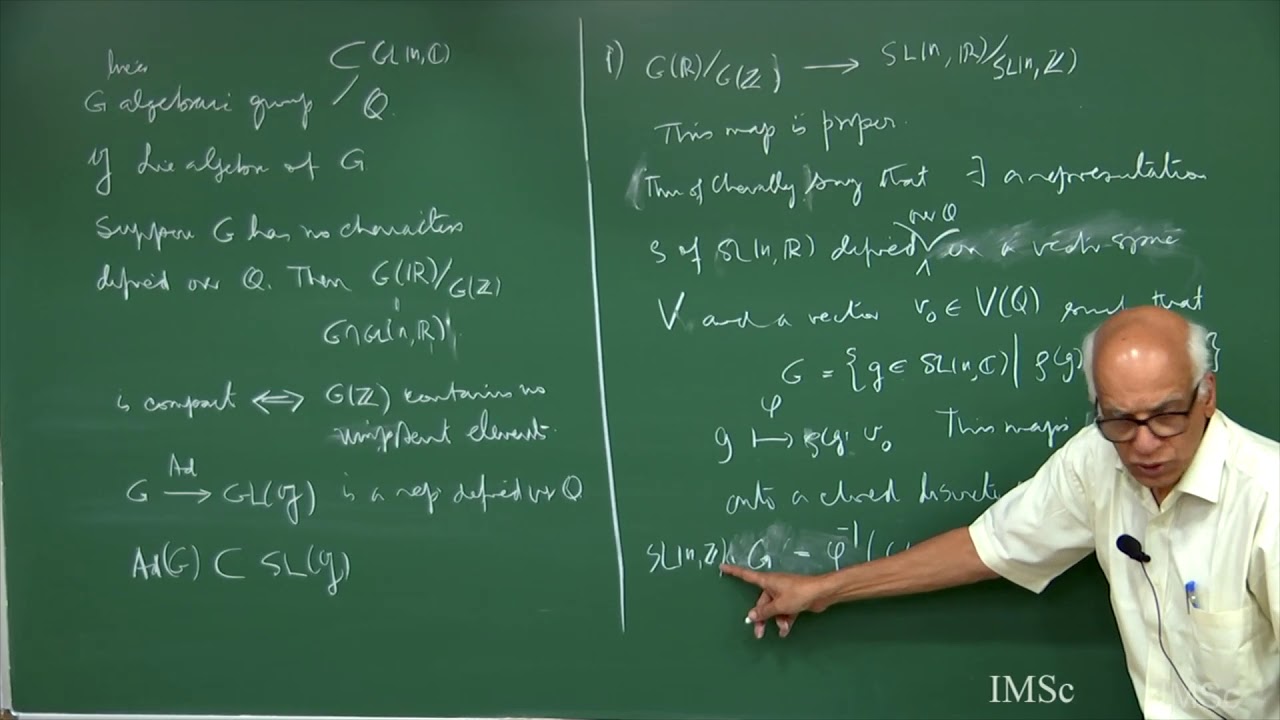 linear ⊂ GL(n,ℂ)
G algebraic group / Q.
g Lie algebra of G
Suppose G has no characters
defined over Q. Then G(ℝ)/G(ℤ)
G∩GL(n,ℝ)
is compact ⟺ G(ℤ) contains no
unipotent elements.
G →^Ad GL(g) is a rep defined over Q
Ad(G) ⊂ SL(g)
1) G(ℝ)/G(ℤ) → SL(n,ℝ)/SL(n,ℤ)
This map is proper.
(Thm of Chevalley) Say that ∃ a representation
over Q
ρ of SL(n,ℝ) defined on a vector space
V and a vector v₀ ∈ V(Q) such that
G = {g ∈ SL(n,ℂ) | ρ(g) }
φ
g ↦ ρ(g) v₀ This maps
onto a closed discrete
SL(n,ℤ) G = φ⁻¹(
IMSc